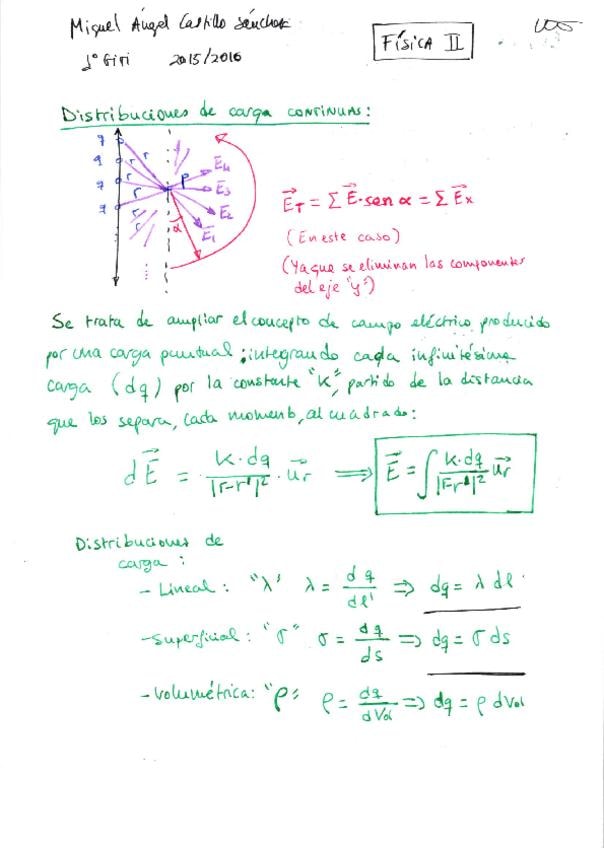 Miguel Ángel Castillo Sánchez
FÍSICA II
1º GITI 2015/2016
Distribuciones de carga CONTINUAS:
q
q
q
q
r
r
r
r
P
E4
E3
E2
E1
α
E⃗T = Σ E⃗·sen α = Σ E⃗x
(En este caso)
(Ya que se eliminan las componentes
del eje "y")
Se trata de ampliar el concepto de campo eléctrico producido
por una carga puntual; integrando cada infinitésima
carga (dq) por la constante "K", partido de la distancia
que los separa, cada momento, al cuadrado:
dE⃗ = K·dq / |r-r'|² · u⃗r ⟹ E⃗ = ∫ K·dq / |r-r'|² u⃗r
Distribuciones de
carga:
- Lineal: "λ" λ = dq / dl' ⇒ dq = λ dl
- Superficial: "σ" σ = dq / ds ⇒ dq = σ ds
- Volumétrica: "ρ" ρ = dq / dVol ⇒ dq = ρ dVol